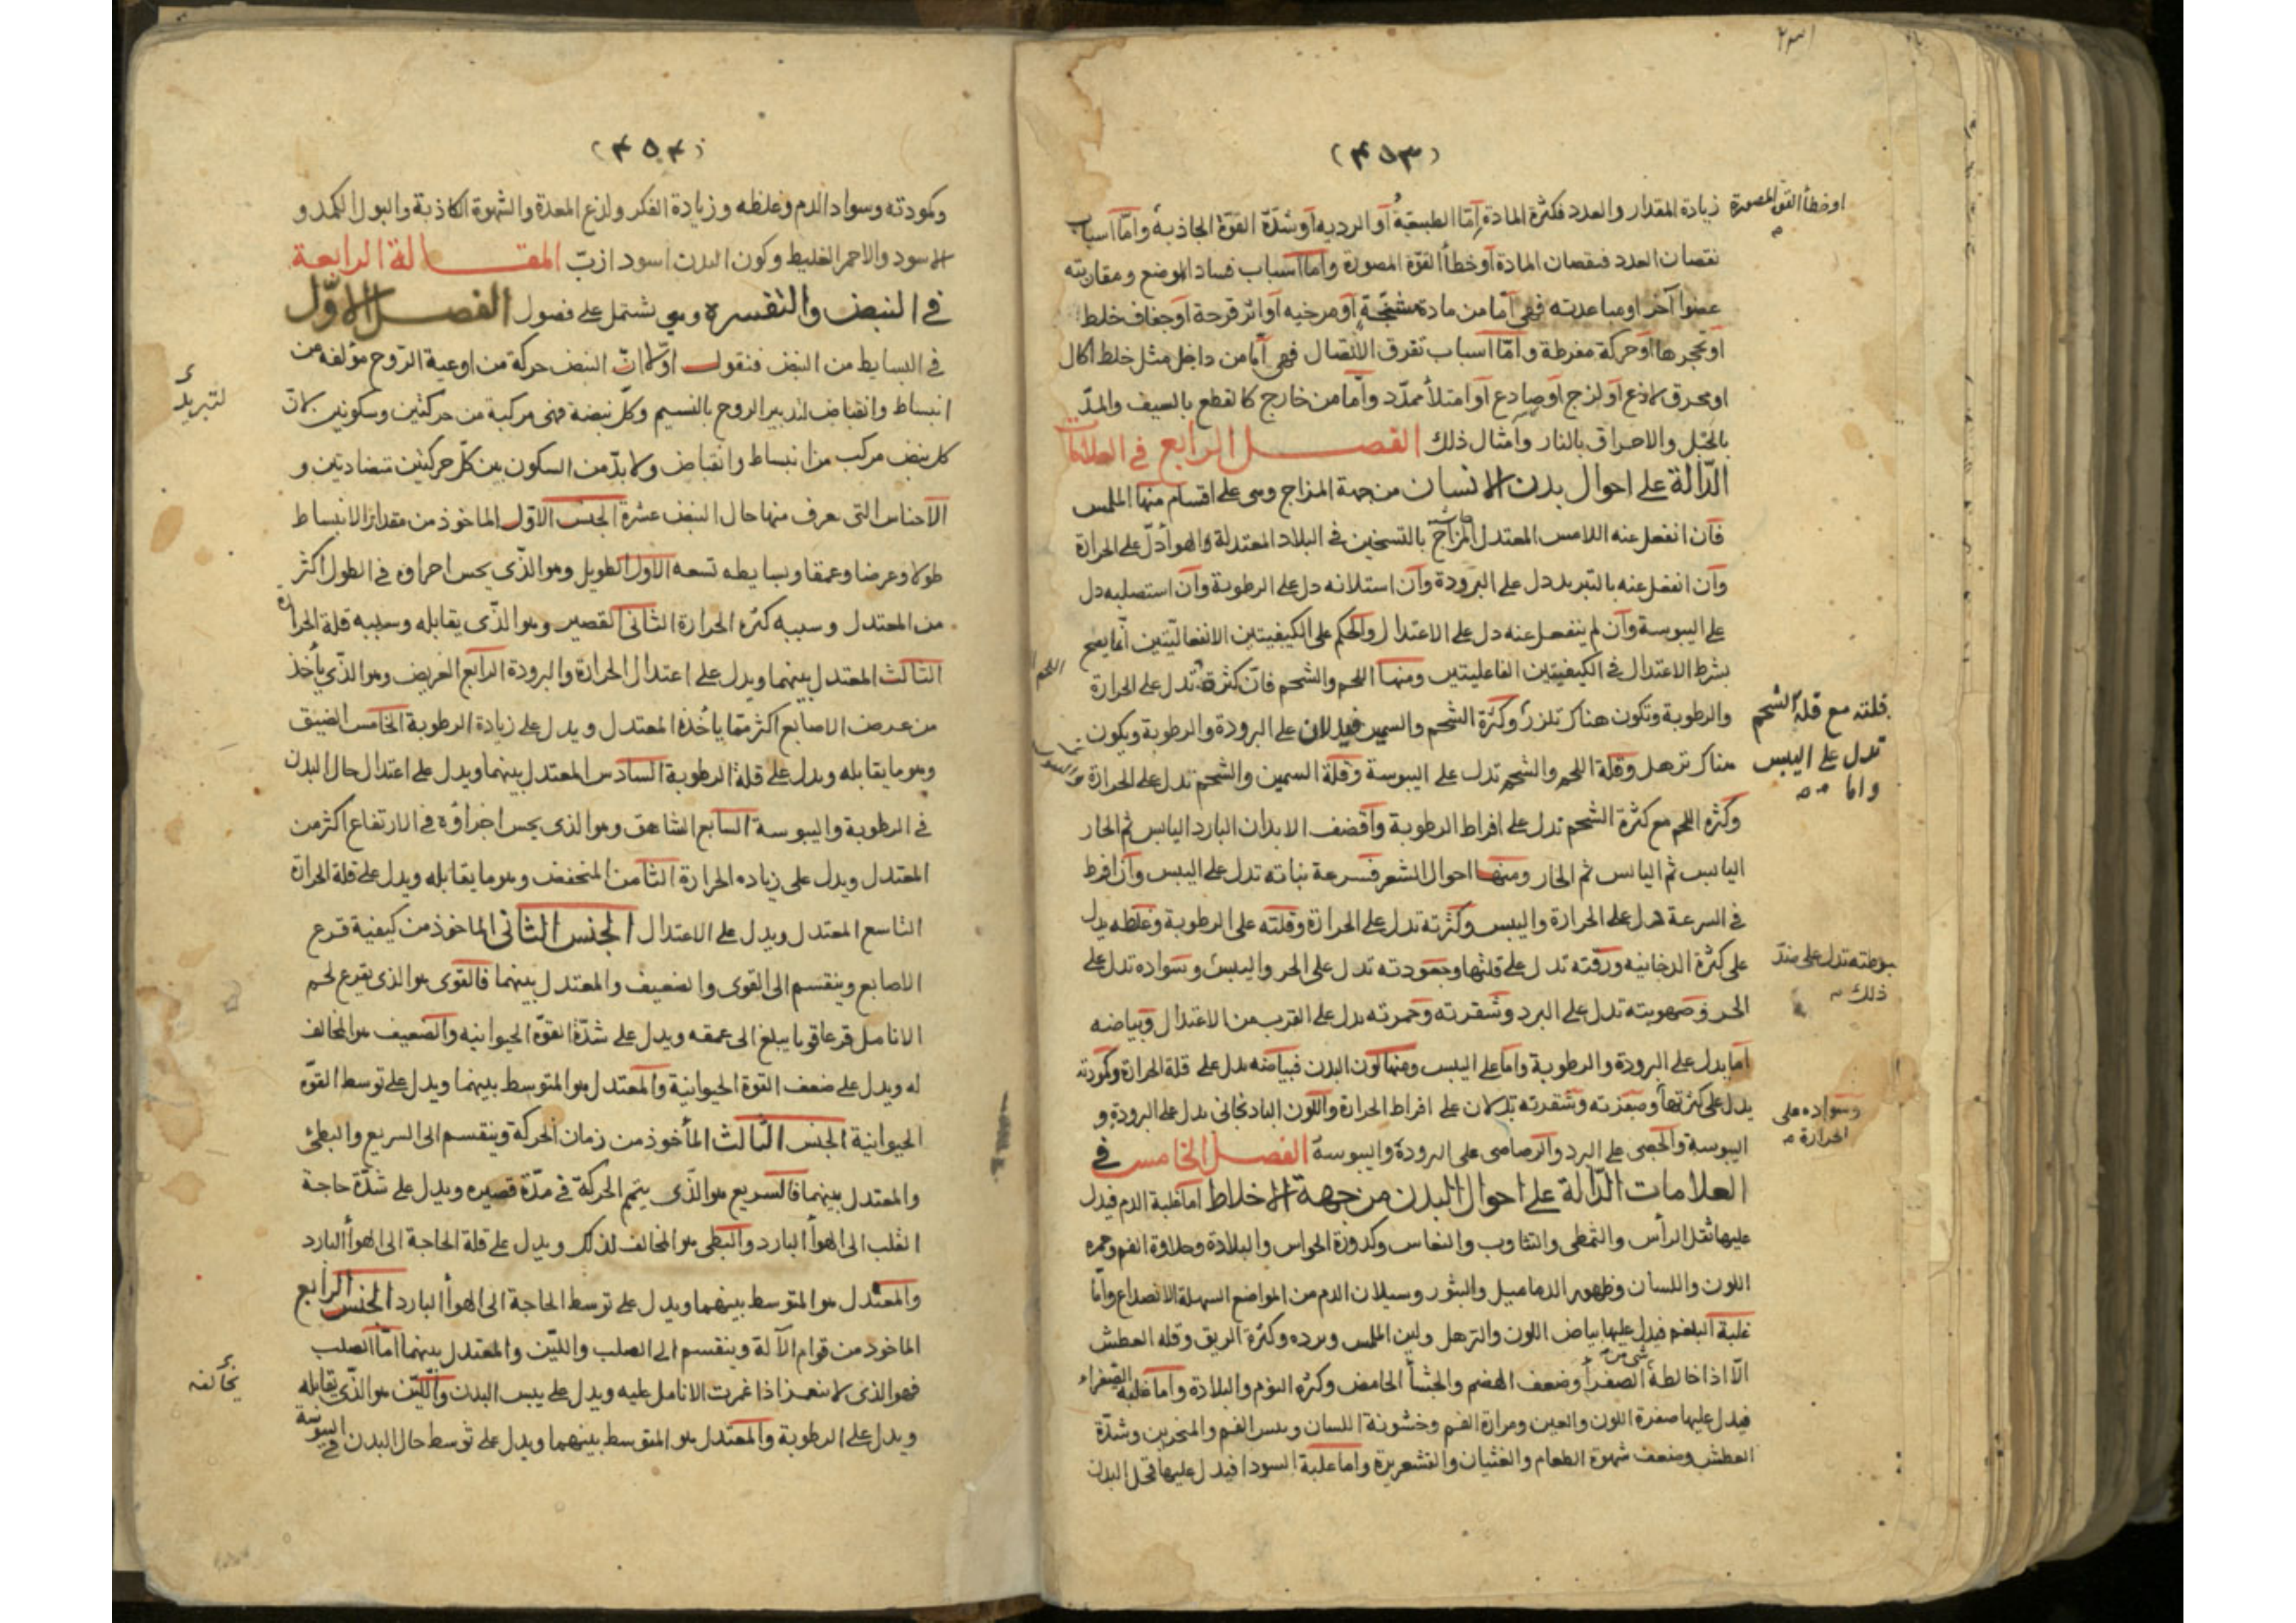 (٤٥٣)
زيادة المقدار والعدد فكثرة المادة إما الطبيعية أو الردية أو شدة القوة الجاذبة وأما أسباب
او خطأ القوة المصورة
نقصان العدد فنقصان المادة أو خطأ القوة المصورة وأما أسباب فساد الموضع ومقاربته
عضوا آخر او مباعدته فهي أما من مادة مشنّجة أو مرخيه أو اثر قرحة أو جفاف خلط
او تحجرها أو حركة مفرطة وأما اسباب تفرق الاتصال فهي أما من داخل مثل خلط اكال
او محرق لاذع أو لزج أو صادع أو امتلأ ممدّد وأما من خارج كالقطع بالسيف والمدّ
بالحبل والاحراق بالنار وأمثال ذلك الفصل الرابع في العلامات
الدّالة على احوال بدن الانسان من جهة المزاج وهي على اقسام منها الملمس
فان انفعل عنه اللامس المعتدل المزاج بالتسخين في البلاد المعتدلة والهوأ دلّ على الحرارة
وأن انفعل عنه بالتبريد دل على البرودة وأن استلانه دل على الرطوبة وأن استصلبه دل
على اليبوسة وأن لم ينفعل عنه دل على الاعتدال والحكم على الكيفيتين الانفعاليّتين أنما يصح
بشرط الاعتدال في الكيفيتين الفاعليتين ومنها اللحم والشحم فانّ كثرة تدل على الحرارة
اللحم
والرطوبة وتكون هناك تلزز وكثرة الشحم والسمين فيدلان على البرودة والرطوبة ويكون
قلته مع قلة الشحم
تدل على اليبس
واما
هناك ترهل وقلة اللحم والشحم تدل على اليبوسة وقلة السمين والشحم تدل على الحرارة
وكثره اللحم مع كثرة الشحم تدل على افراط الرطوبة وأقضف الابدان البارد اليابس ثم الحار
اليابس ثم اليابس ثم الحار ومنها احوال الشعر فسرعة نباته تدل على اليبس وأن افرط
في السرعة دل على الحرارة واليبس وكثرته تدل على الحرارة وقلته على الرطوبة وغلظه يدل
على كثرة الدخانيه ورقته تدل على قلتها وجعودته تدل على الحر واليبس وسواده تدل على
سبوطته تدل على ضدّ
ذلك
الحر وصهوبته تدل على البرد وشقرته وحمرته يدل على القرب من الاعتدال وبياضه
أما يدل على البرودة والرطوبة وأما على اليبس ومنها لون البدن فبياضه يدل على قلة الحرارة وكمودته
يدل على كثرتها وصفرته وشقرته تدلان على افراط الحرارة واللون الباذنجاني يدل على البرودة و
وسواده على
الحرارة
اليبوسة والجصى على البرد والرصاصى على البرودة واليبوسة الفصل الخامس في
العلامات الدّالة على احوال البدن من جهة الاخلاط أما غلبة الدم فيدل
عليها ثقل الرأس والتمطى والتثاوب والنعاس وكدورة الحواس والبلادة وحلاوة الفم وحمره
اللون واللسان وظهور الدماميل والبثور وسيلان الدم من المواضع السهلة الانصداع وأما
غلبة البلغم فيدل عليها بياض اللون والترهل ولين الملمس وبرده وكثرة الريق وقلة العطش
الّا اذا خالطه الصفرأ وضعف الهضم والجشأ الحامض وكثره النوم والبلادة وأما غلبة الصفراء
فيدل عليها صفرة اللون والعين ومرارة الفم وخشونة اللسان ويبس الفم والمنخرين وشدّة
العطش وضعف شهوة الطعام والغثيان والقشعريرة وأما غلبة السودا فيدل عليها قحل البدن
(٤٥٤)
وكمودته وسواد الدم وغلظه وزيادة الفكر ولذع المعدة والشهوة الكاذبة والبول الكمد و
الاسود والاحمر الغليط وكون البدن اسود ازبّ المقالة الرابعة
في النبض والتفسره وهي تشتمل على فصول الفصل الاوّل
في البسايط من النبض فنقول اوّلا انّ النبض حركة من اوعية الرّوح مؤلفه من
انبساط وانقباض لتدبير الروح بالنسيم وكلّ نبضة فهى مركبة من حركتين وسكونين لانّ
لتبريد
كل نبض مركب من انبساط وانقباض ولا بدّ من السكون بين كلّ حركتين متضادتين و
الاجناس التى يعرف منها حال النبض عشرة الجنس الاوّل الماخوذ من مقدار الانبساط
طولا وعرضا وعمقا وبسايطه تسعه الاول الطويل وهو الذّي يحس اجزاؤه في الطول اكثر
من المعتدل وسببه كثره الحرارة الثانى القصير وهو الذّى يقابله وسببه قلة الحرارة
الثالث المعتدل بينهما ويدل على اعتدال الحرارة والبرودة الرابع العريض وهو الذّي يأخذ
من عرض الاصابع اكثر مما يأخذه المعتدل ويدل على زيادة الرطوبة الخامس الضيق
وهو ما يقابله ويدل على قلة الرطوبة السادس المعتدل بينهما ويدل على اعتدال حال البدن
في الرطوبة واليبوسة السابع الشاهق وهو الذى يحس اجزاؤه في الارتفاع اكثر من
المعتدل ويدل على زياده الحرارة الثامن المنخفض وهو ما يقابله ويدل على قلة الحرارة
التاسع المعتدل ويدل على الاعتدال الجنس الثانى الماخوذ من كيفية قرع
الاصابع وينقسم الى القوى والضعيف والمعتدل بينهما فالقوى هو الذى يقرع لحم
الانامل قرعا قويا يبلغ الى عمقه ويدل على شدّة القوّه الحيوانيه والضعيف هو المخالف
له ويدل على ضعف القوة الحيوانية والمعتدل هو المتوسط بينهما ويدل على توسط القوّه
الحيوانية الجنس الثالث المأخوذ من زمان الحركة وينقسم الى السريع والبطئ
والمعتدل بينهما فالسريع هو الذّى يتمم الحركة في مدّة قصيره ويدل على شدّة حاجة
القلب الى الهوأ البارد والبطى هو المخالف لذلك ويدل على قلة الحاجة الى الهوأ البارد
والمعتدل هو المتوسط بينهما ويدل على توسط الحاجة الى الهوأ البارد الجنس الرابع
الماخوذ من قوام الآلة وينقسم الى الصلب واللّين والمعتدل بينهما أمّا الصلب
فهو الذى لا ينغمز اذا غمرت الانامل عليه ويدل على يبس البدن واللّيّن هو الذّي يقابله
يخالفه
ويدل على الرطوبة والمعتدل هو المتوسط بينهما ويدل على توسط حال البدن في اليبوسة